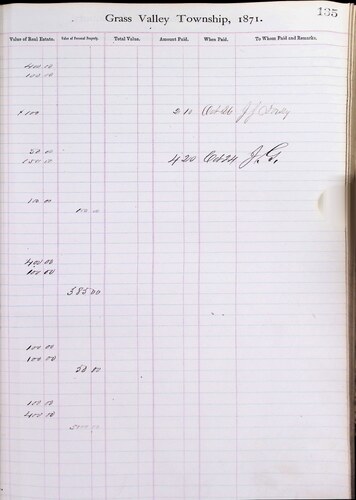 Grass Valley Township, 1871.
135
Value of Real Estate. Value of Personal Property. Total Value. Amount Paid. When Paid. To Whom Paid and Remarks.
400 00
100 00
100 2 10 Oct 26
50 00
150 00 4 20 Oct 24 J. G.
100 00
100 00
400 00
100 00
585 00
100 00
100 00
50 00
100 00
400 00